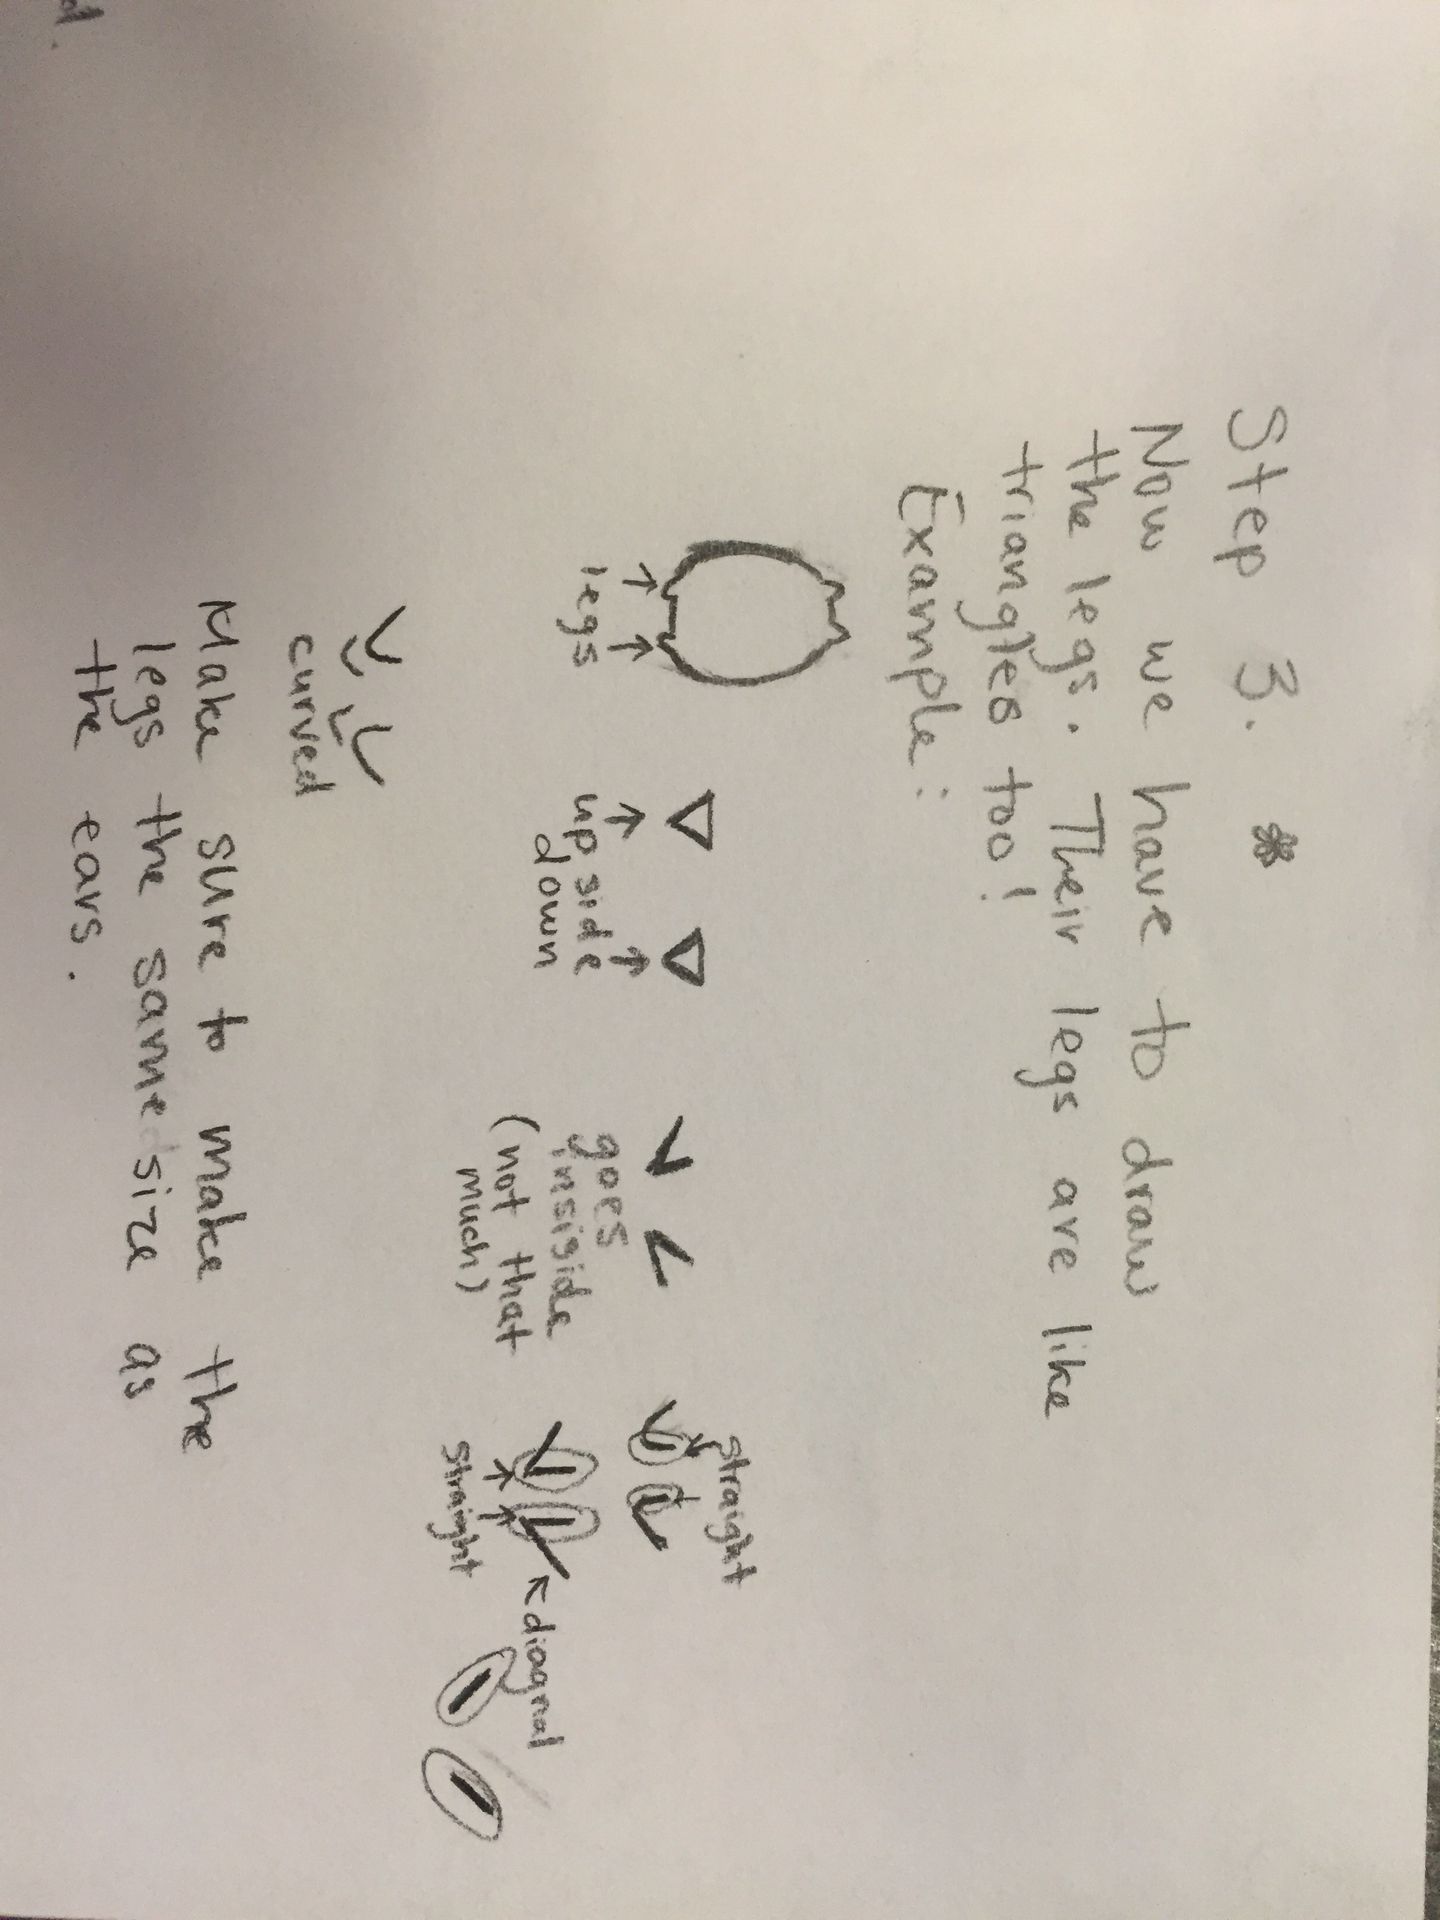 Step 3.
Now we have to draw
the legs. Their legs are like
triangles too!
Example:
legs
up side
down
goes
insiside
(not that
much)
straight
straight
diagnal
curved
Make sure to make the
legs the same size as
the ears.